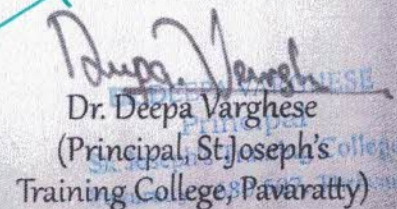 Dr. Deepa Varghese
(Principal, St.Joseph's
Training College, Pavaratty)